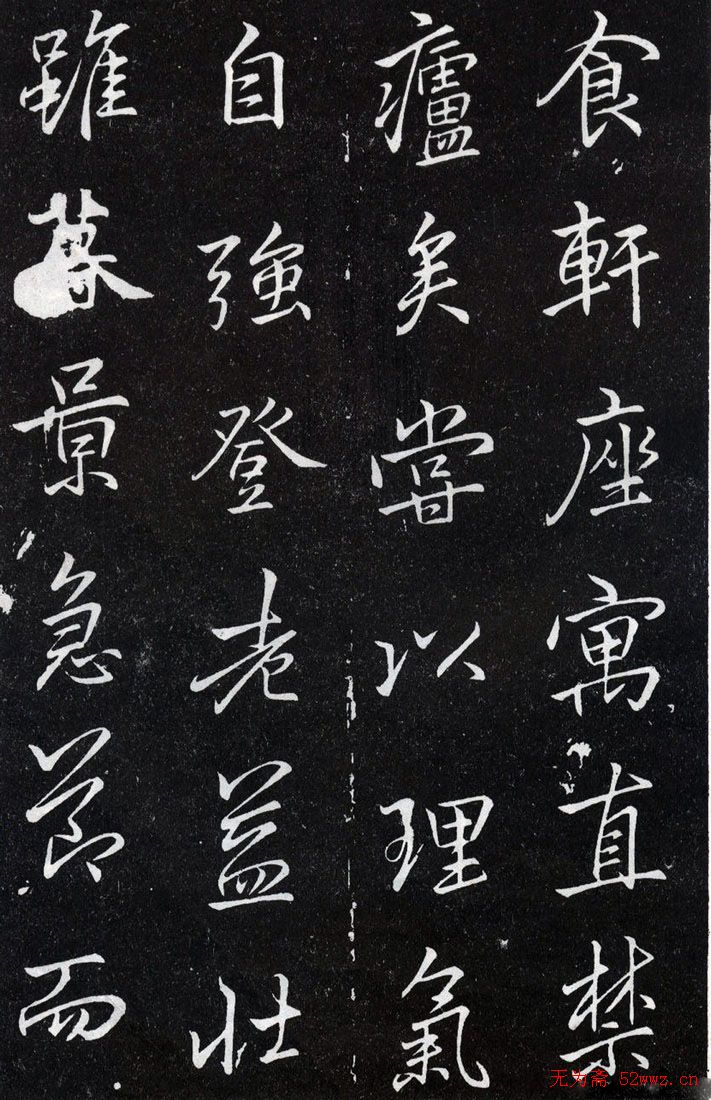 食軒座寓直禁
廬矣嘗以理氣
自強登老益壯
雖暮景急節而
无为斋 52wwz.cn